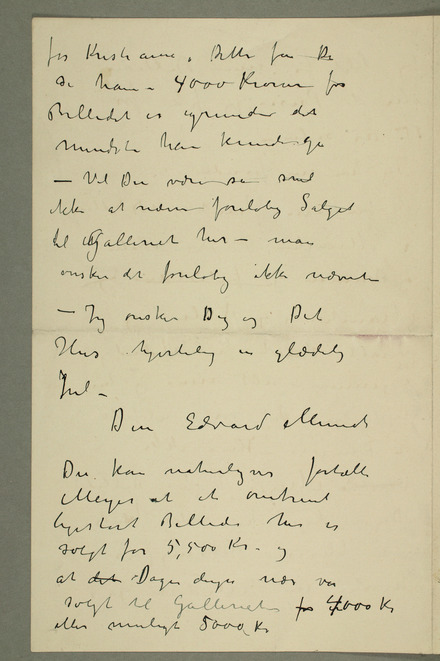 for Kristiania. Dette får Du
se ham – 4000 Kroner for
Billedet er egentlig det
mindste han kunde gi
– Vil Du være så snil
ikke at nævne foreløbig Salget
til Galleriet her – man
ønsker det foreløbig ikke nævnt
– Jeg ønsker Dig og Dit
Hus hjertelig en glædelig
Jul –
Din Edvard Munch
Du kan naturligvis fortælle
Meyer at et omtrent
ligestort Billede her er
solgt for 5,500 Kr – og
at det Dagen derpå var
solgt til Galleriet for 4000 Kr
eller muligt 5000 Kr